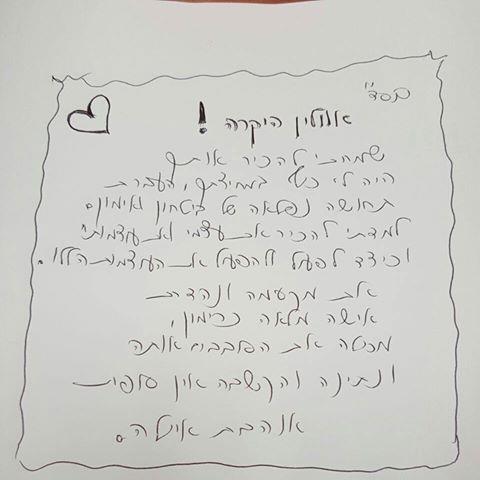 בסד"
אוולין היקרה !
שמחתי להכיר אותך
היה לי כיף במחיצתך, העברת
תחושה נפלאה של ביטחון ואימון.
למדתי להכיר את עצמי ואת עוצמותי
וכיצד לפעול ולהפעיל את העוצמות הללו.
את מקסימה ונהדרת
אישה מלאה כרימון,
את הסובבים אותה
ונתינה והקשבה אין סופית
אוהבת